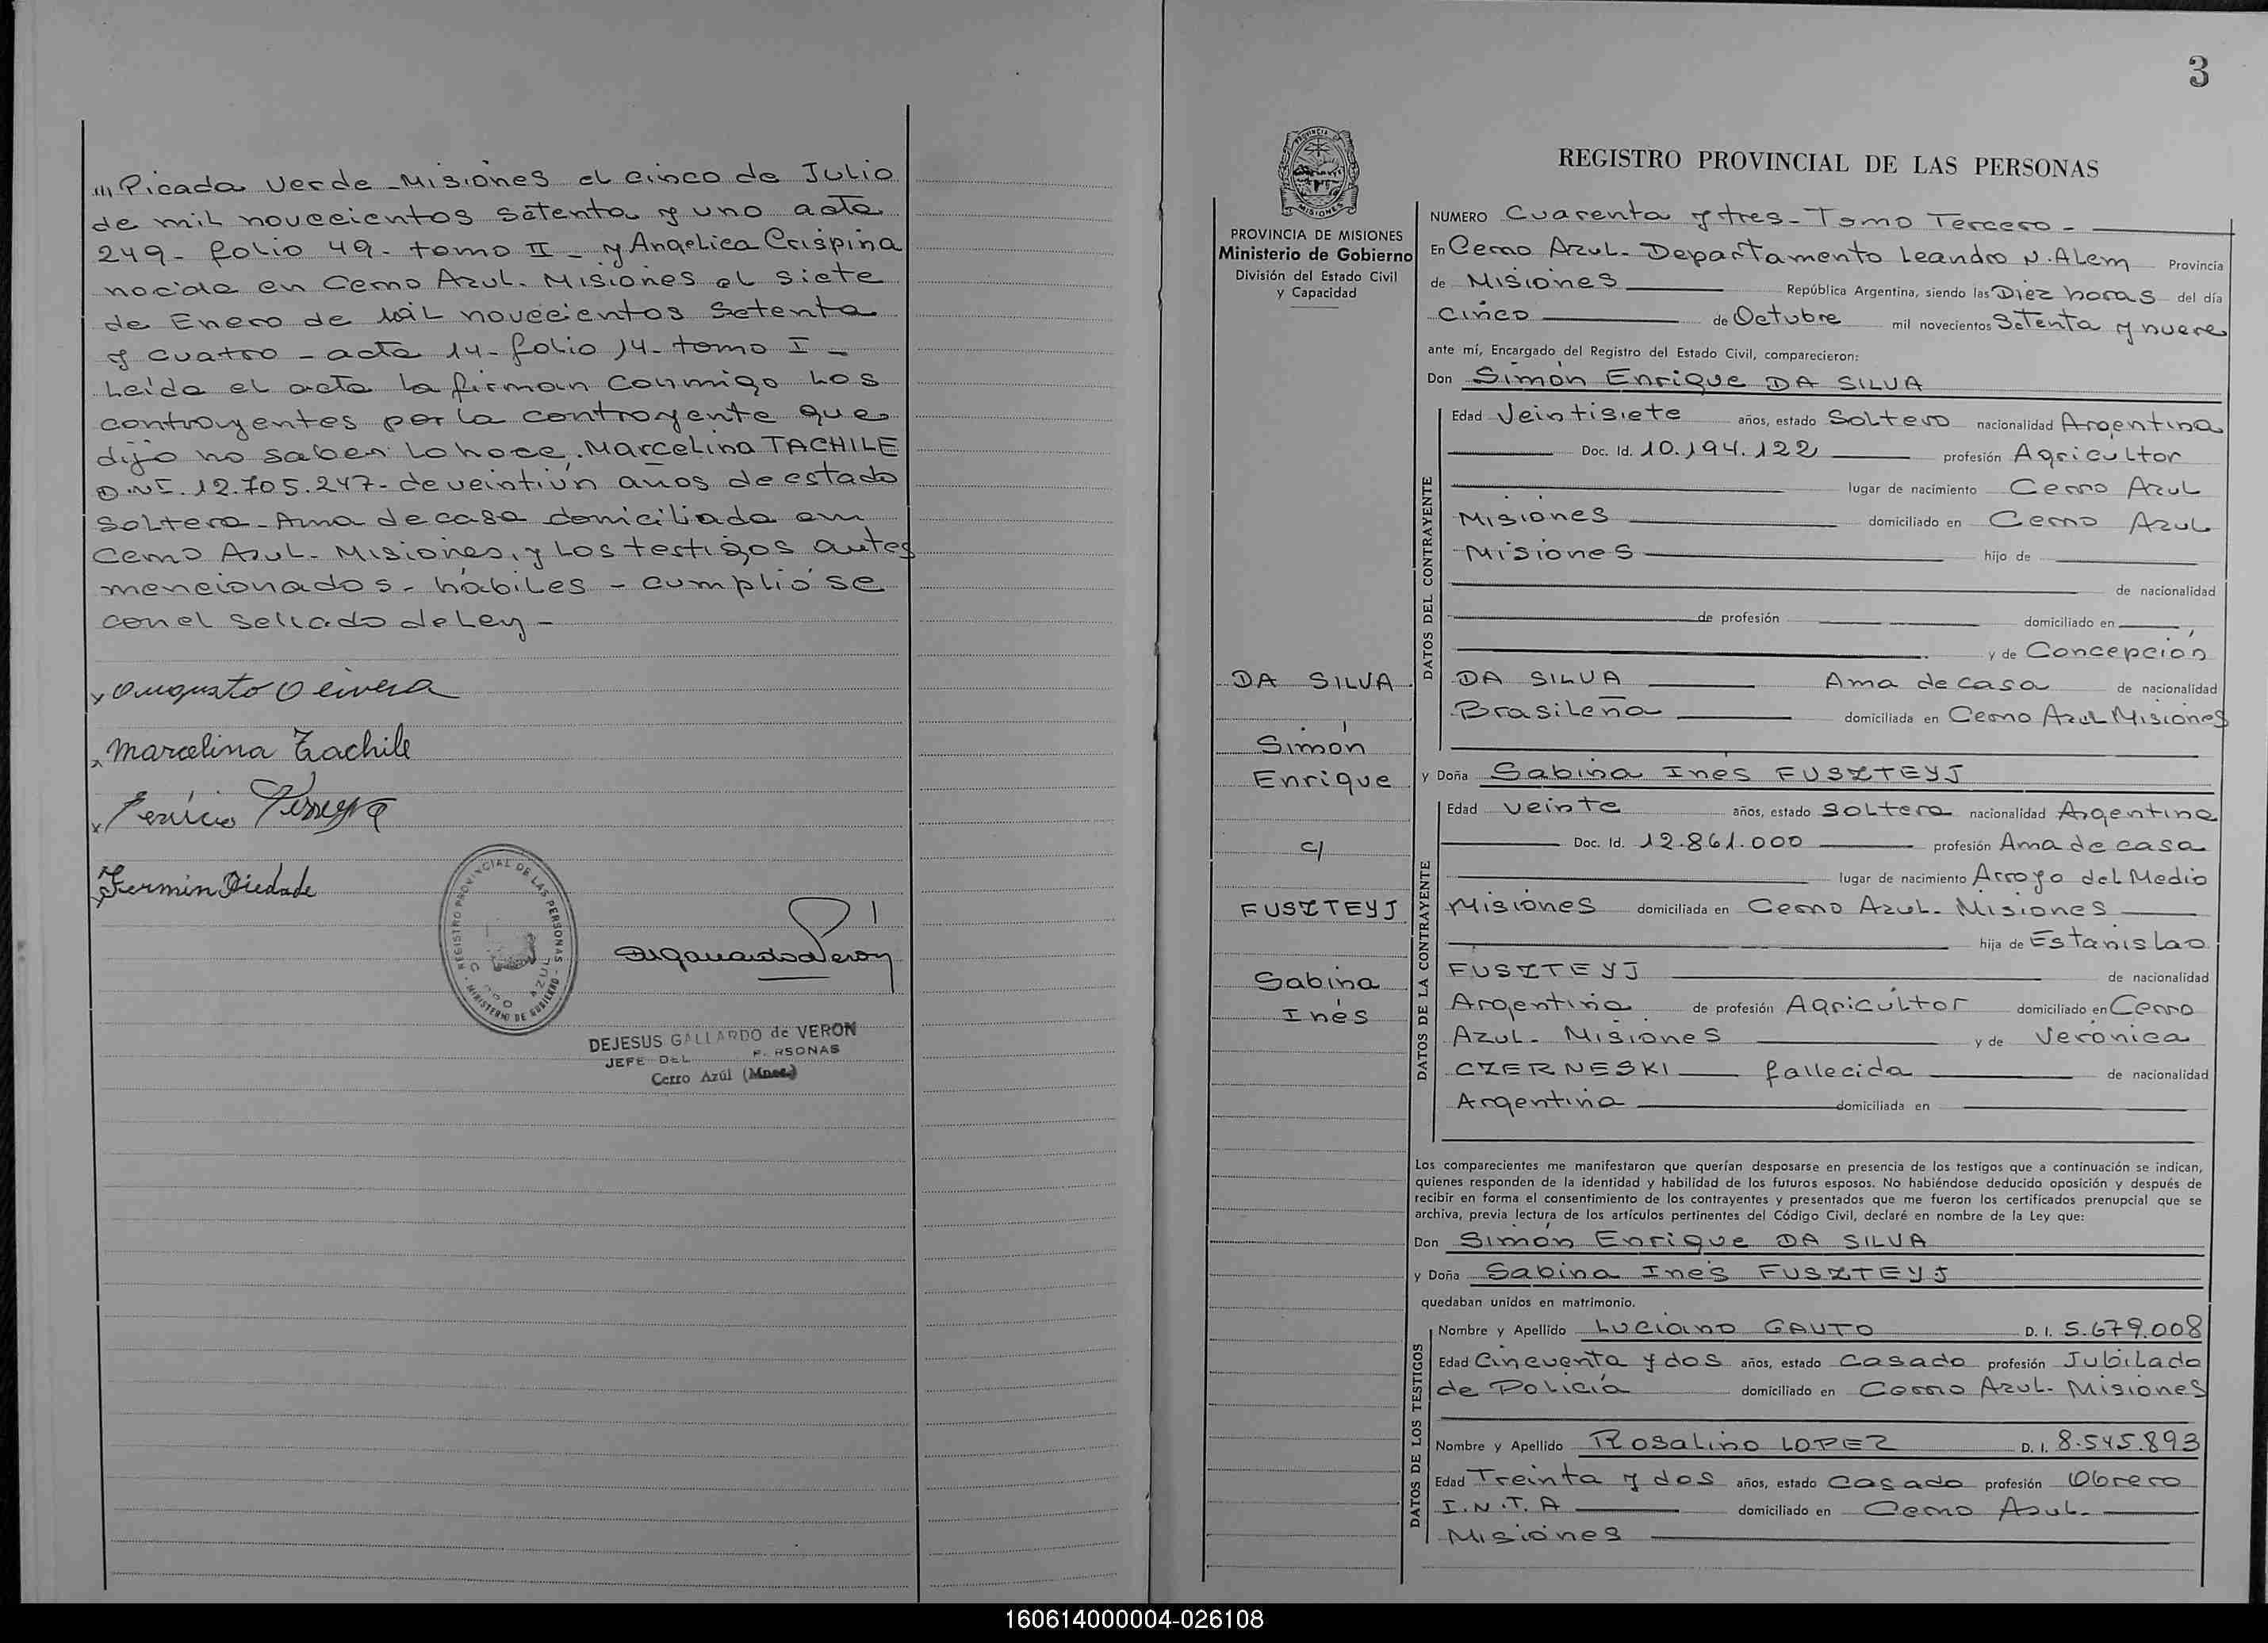 /// Picada Verde - Misiones el cinco de Julio
de mil novecientos setenta y uno acta
249 - folio 49 - tomo II - y Angelica Crispina
nacida en Cerro Azul - Misiones el siete
de Enero de mil novecientos setenta
y cuatro - acta 14 - folio 14 - tomo I -
Leida el acta la firman conmigo los
contrayentes por la contrayente que
dijo no saber lo hace, Marcelina TACHILE
D.N.I. 12.705.247 - de veintiún años de estado
soltera - Ama de casa domiciliada en
Cerro Azul - Misiones, y los testigos antes
mencionados - hábiles - cumplió se
con el sellado de Ley -
x Augusto Olivera
x Marcelina Tachile
x
x Fermin Piedade
REGISTRO PROVINCIAL DE LAS PERSONAS - MINISTERIO DE GOBIERNO -
DEJESUS GALLARDO de VERON
JEFE DEL PERSONAS
Cerro Azúl (Mnes.)
3
PROVINCIA DE MISIONES
PROVINCIA DE MISIONES
Ministerio de Gobierno
División del Estado Civil
y Capacidad
DA SILVA
Simón
Enrique
c/
FUSZTEYJ
Sabina
Inés
REGISTRO PROVINCIAL DE LAS PERSONAS
NUMERO Cuarenta y tres - Tomo Tercero -
En Cerro Azul - Departamento Leandro N. Alem Provincia
de Misiones República Argentina, siendo las Diez horas del día
Cinco de Octubre mil novecientos Setenta y nueve
ante mí, Encargado del Registro del Estado Civil, comparecieron:
Don Simón Enrique DA SILVA
DATOS DEL CONTRAYENTE
Edad Veintisiete años, estado Soltero nacionalidad Argentina
Doc. Id. 10.194.122 profesión Agricultor
lugar de nacimiento Cerro Azul
Misiones domiciliado en Cerro Azul
Misiones hijo de
de nacionalidad
de profesión domiciliado en
y de Concepción
DA SILVA Ama de casa de nacionalidad
Brasileña domiciliada en Cerro Azul Misiones
y Doña Sabina Inés FUSZTEYJ
DATOS DE LA CONTRAYENTE
Edad veinte años, estado soltera nacionalidad Argentina
Doc. Id. 12.861.000 profesión Ama de casa
lugar de nacimiento Arroyo del Medio
Misiones domiciliada en Cerro Azul - Misiones
hija de Estanislao
FUSZTEYJ de nacionalidad
Argentina de profesión Agricultor domiciliado en Cerro
Azul - Misiones y de Verónica
CZERNESKI fallecida de nacionalidad
Argentina domiciliada en
Los comparecientes me manifestaron que querían desposarse en presencia de los testigos que a continuación se indican,
quienes responden de la identidad y habilidad de los futuros esposos. No habiéndose deducido oposición y después de
recibir en forma el consentimiento de los contrayentes y presentados que me fueron los certificados prenupcial que se
archiva, previa lectura de los artículos pertinentes del Código Civil, declaré en nombre de la Ley que:
Don Simón Enrique DA SILVA
y Doña Sabina Inés FUSZTEYJ
quedaban unidos en matrimonio.
DATOS DE LOS TESTIGOS
Nombre y Apellido Luciano GAUTO D. I. 5.679.008
Edad Cincuenta y dos años, estado casado profesión Jubilado
de Policía domiciliado en Cerro Azul - Misiones
Nombre y Apellido Rosalino LOPEZ D. I. 8.545.893
Edad Treinta y dos años, estado casado profesión Obrero
I.N.T.A domiciliado en Cerro Azul -
Misiones
160614000004-026108